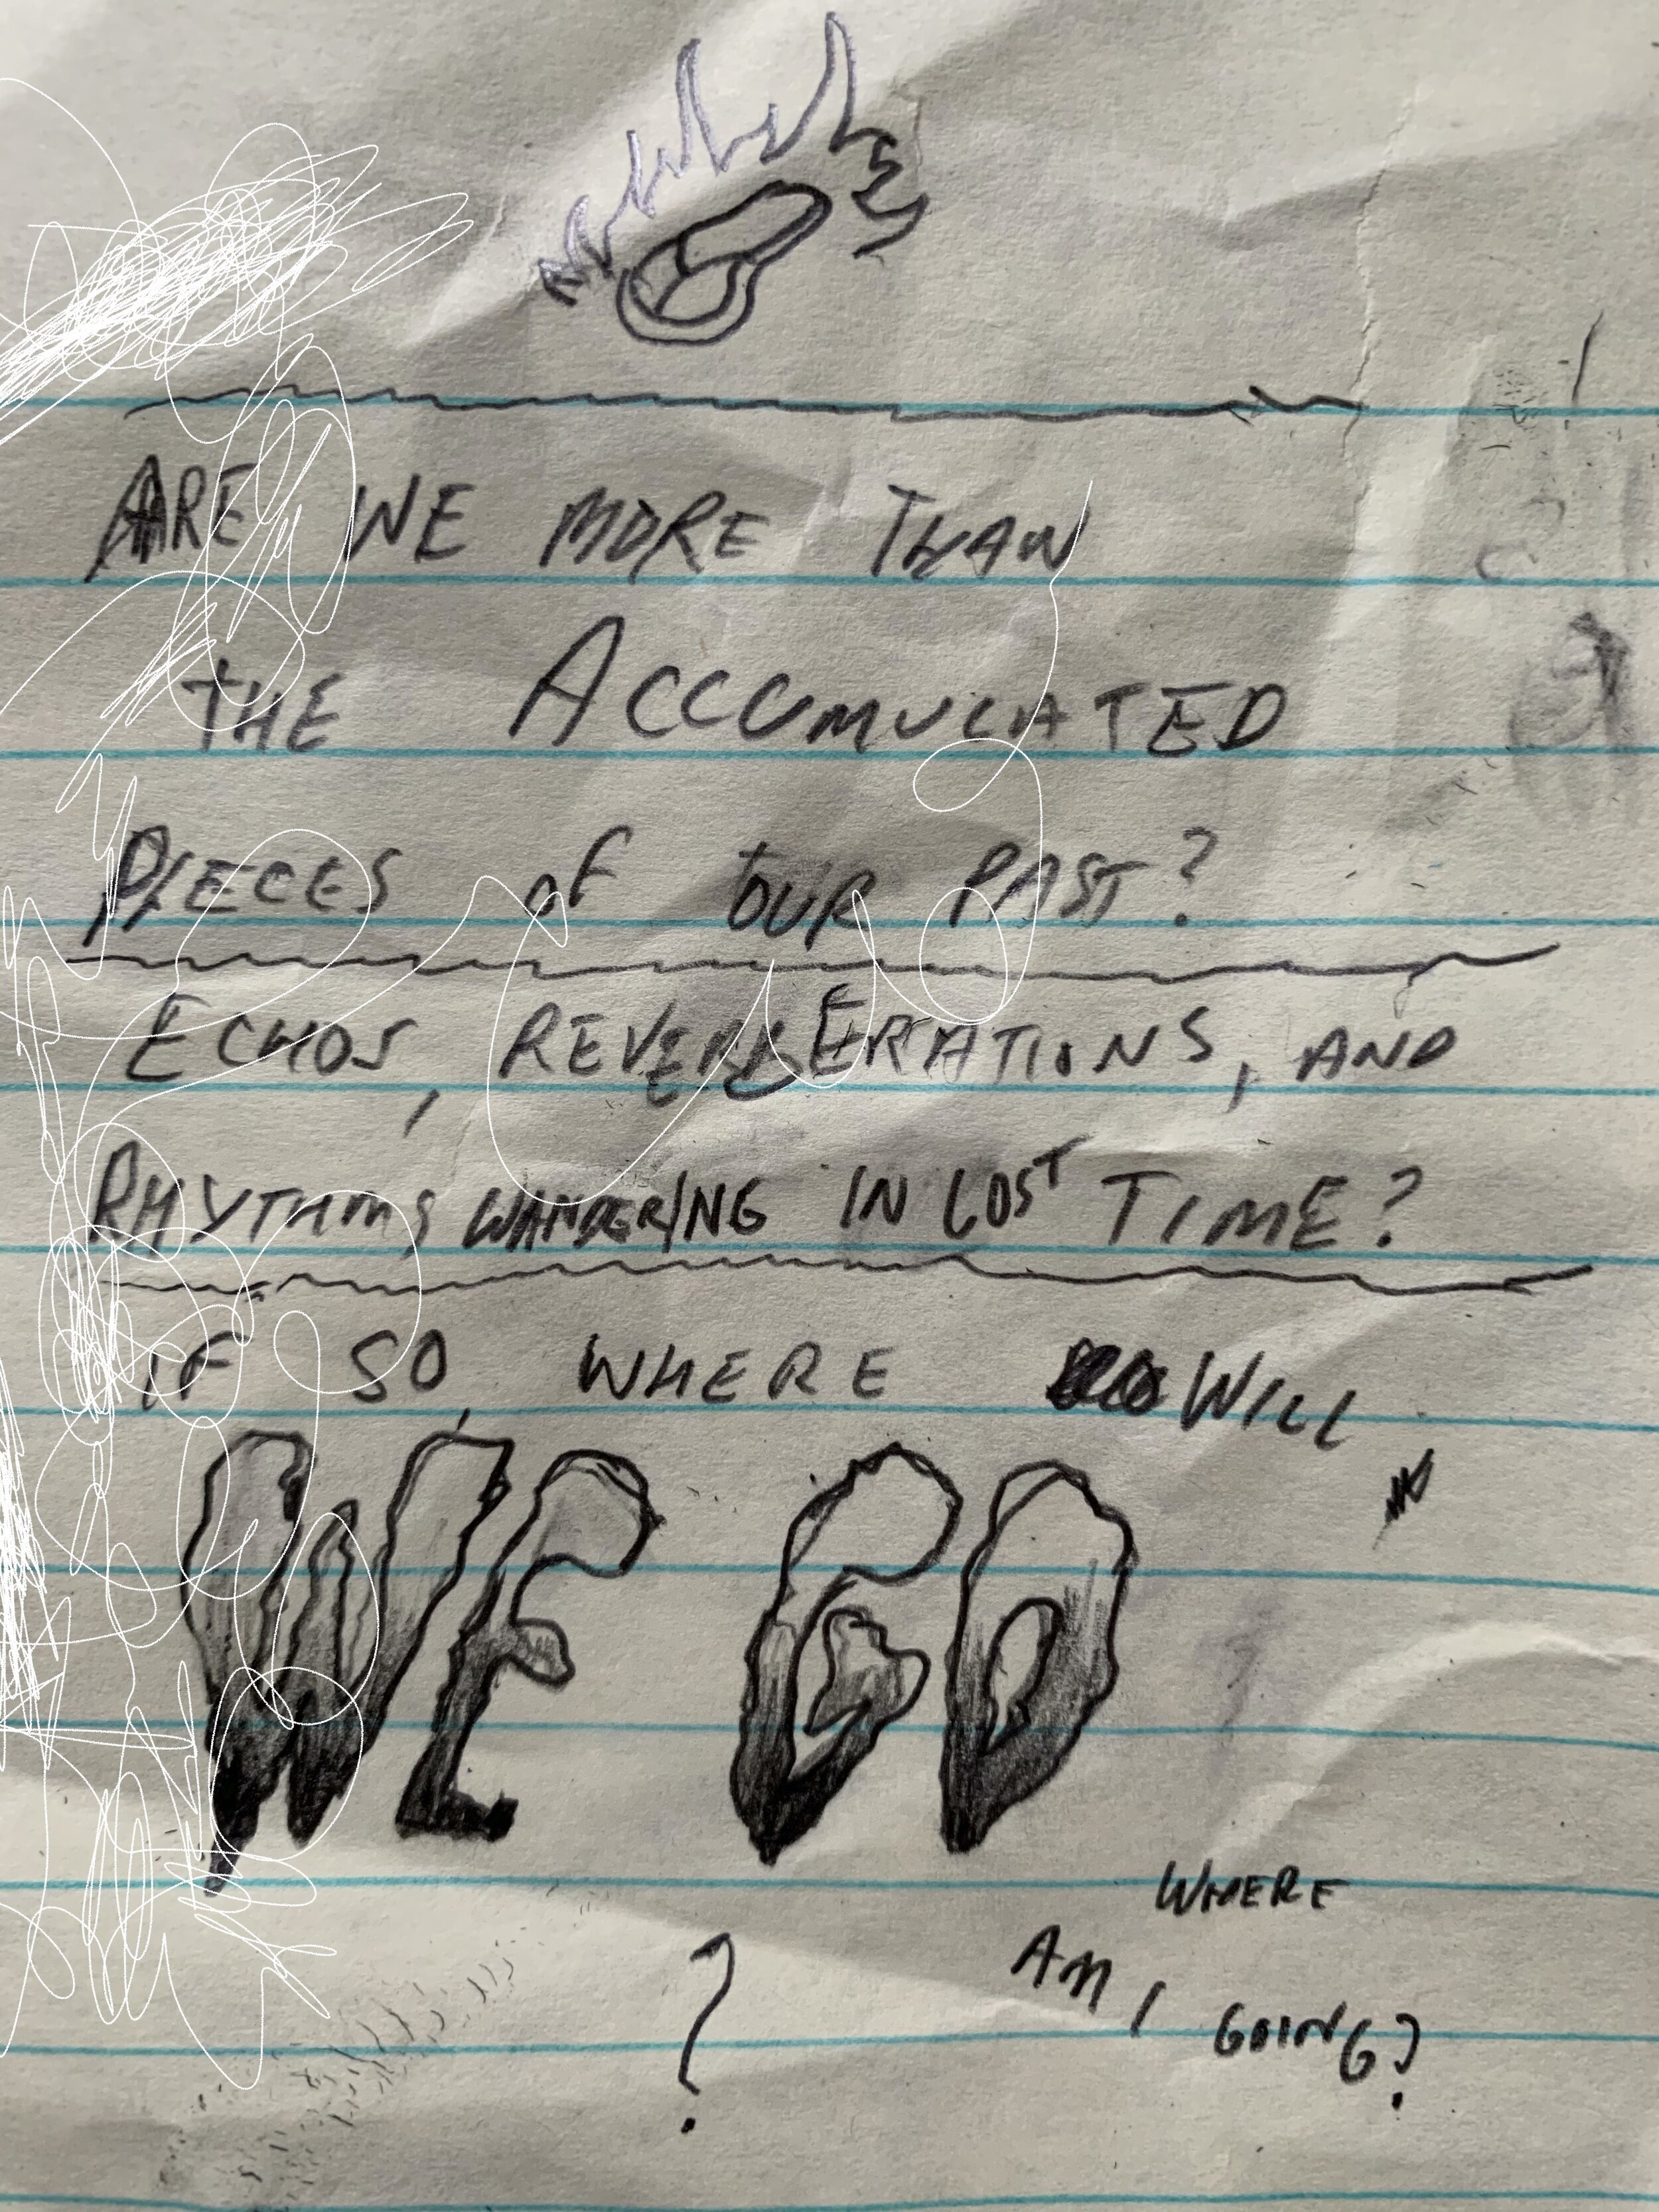 ARE WE MORE THAN
THE ACCCUMULATED
PIECES OF OUR PAST?
ECHOS, REVERBERATIONS, AND
RHYTHMS WANDERING IN LOST TIME?
IF SO, WHERE WILL
WE GO
?
WHERE
AM I GOING?